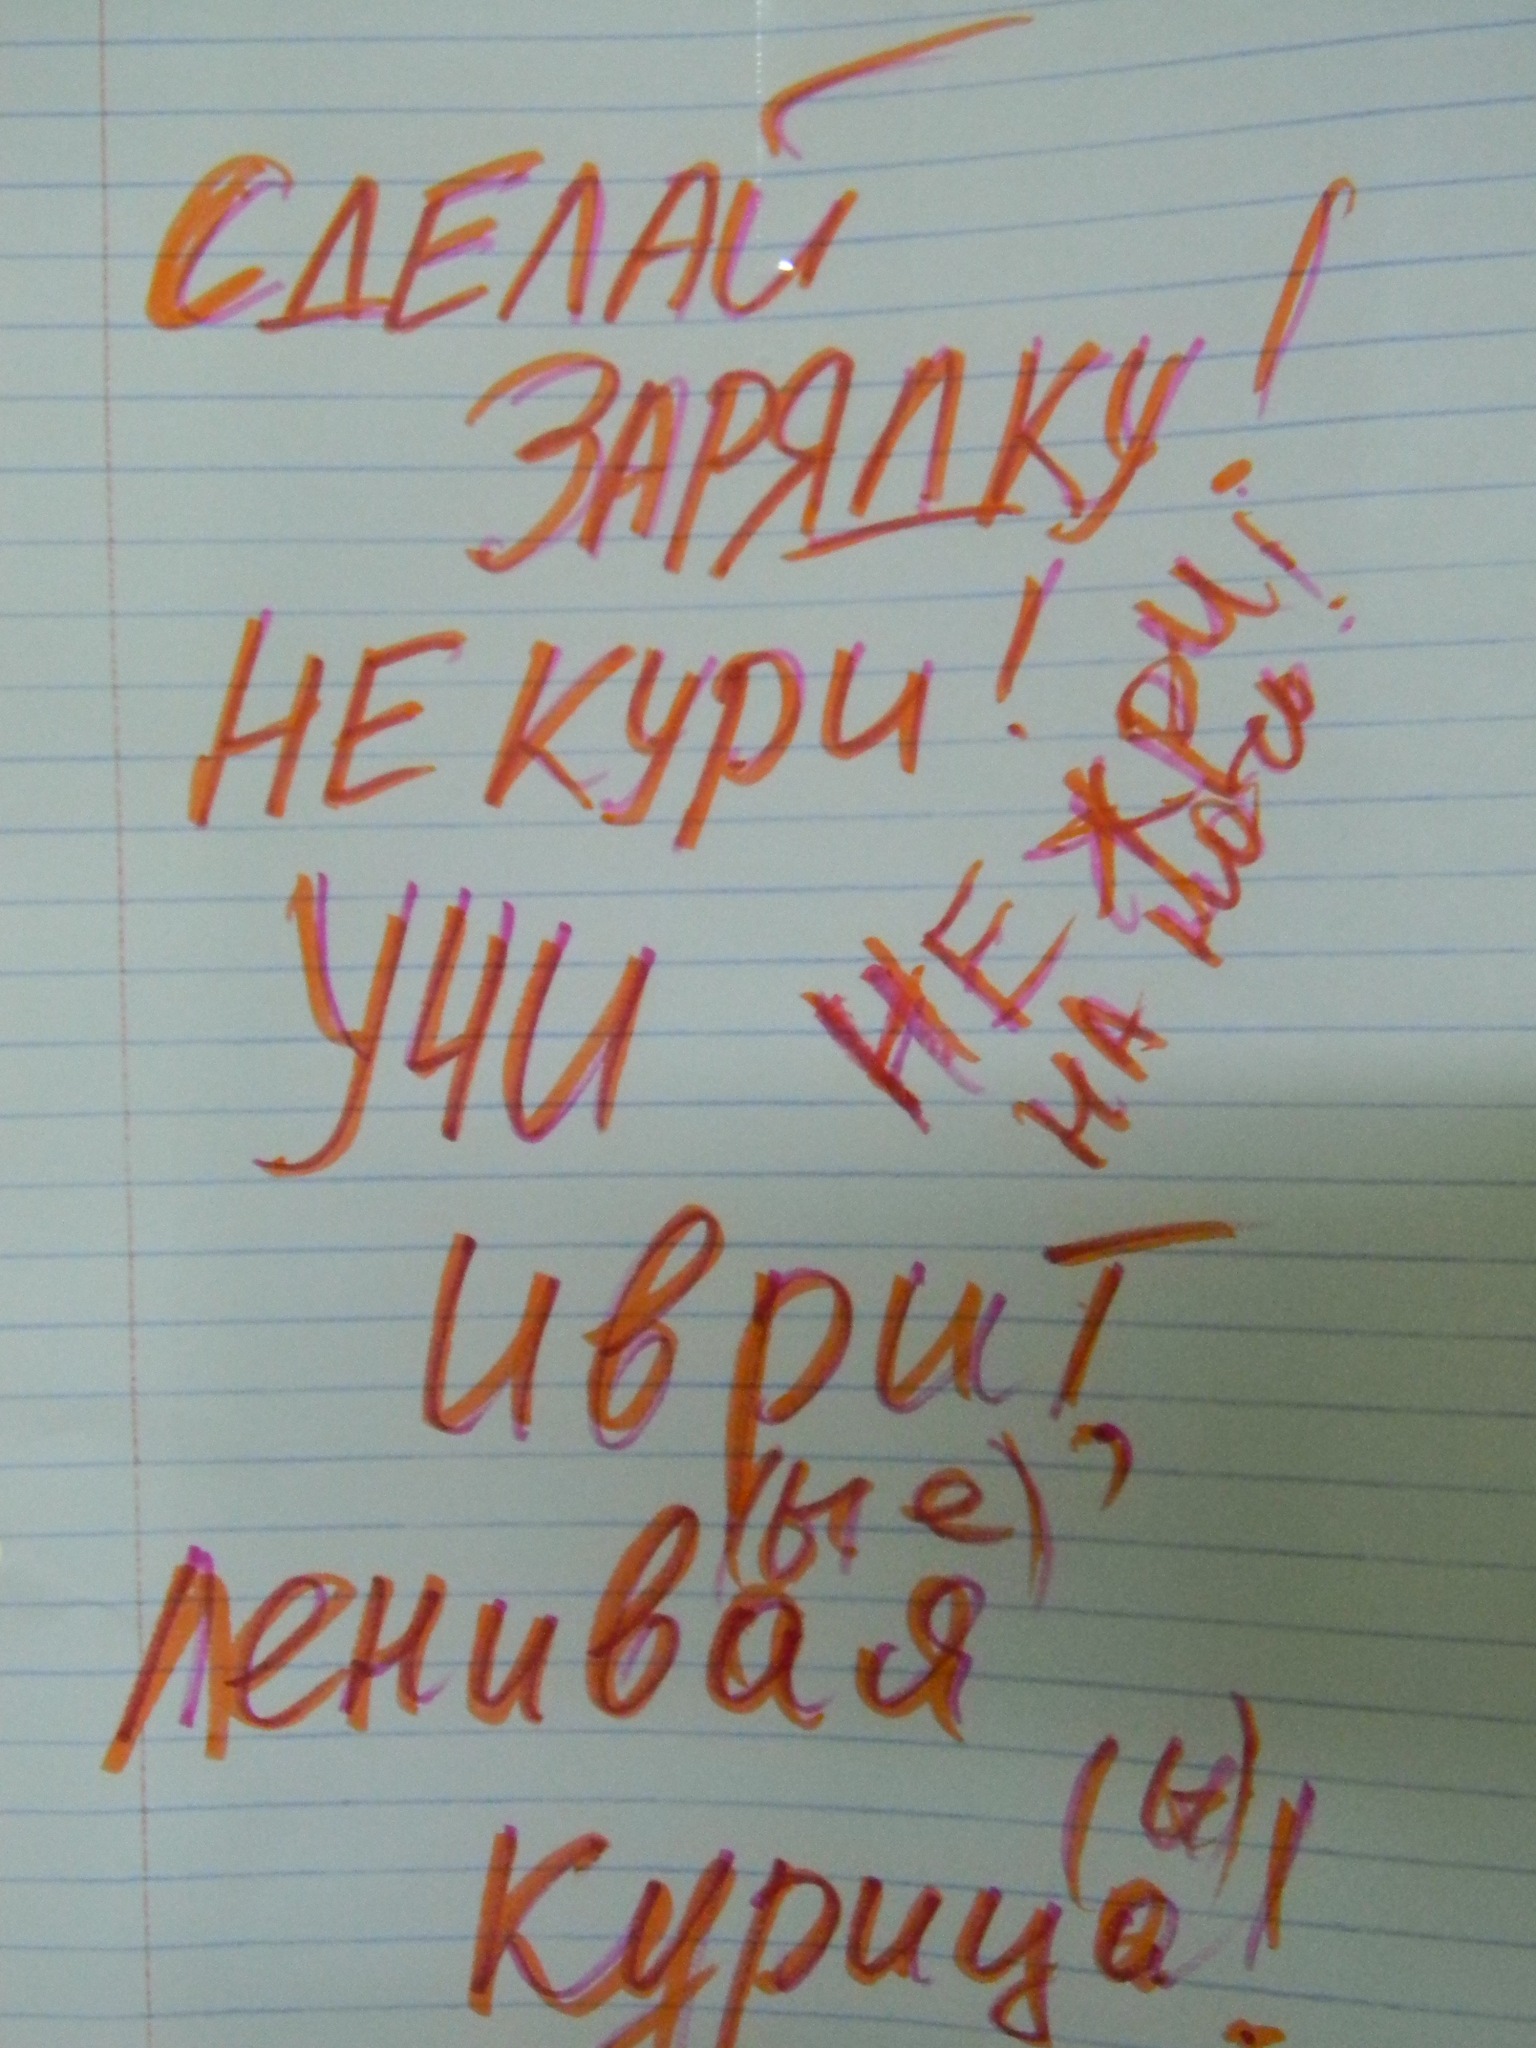 СДЕЛАЙ
ЗАРЯДКУ!
НЕ КУРИ!
НЕ ЖРИ
НА НОЧЬ!
УЧИ
ИВРИТ,
(ые)
ленивая
(ы)
курица!